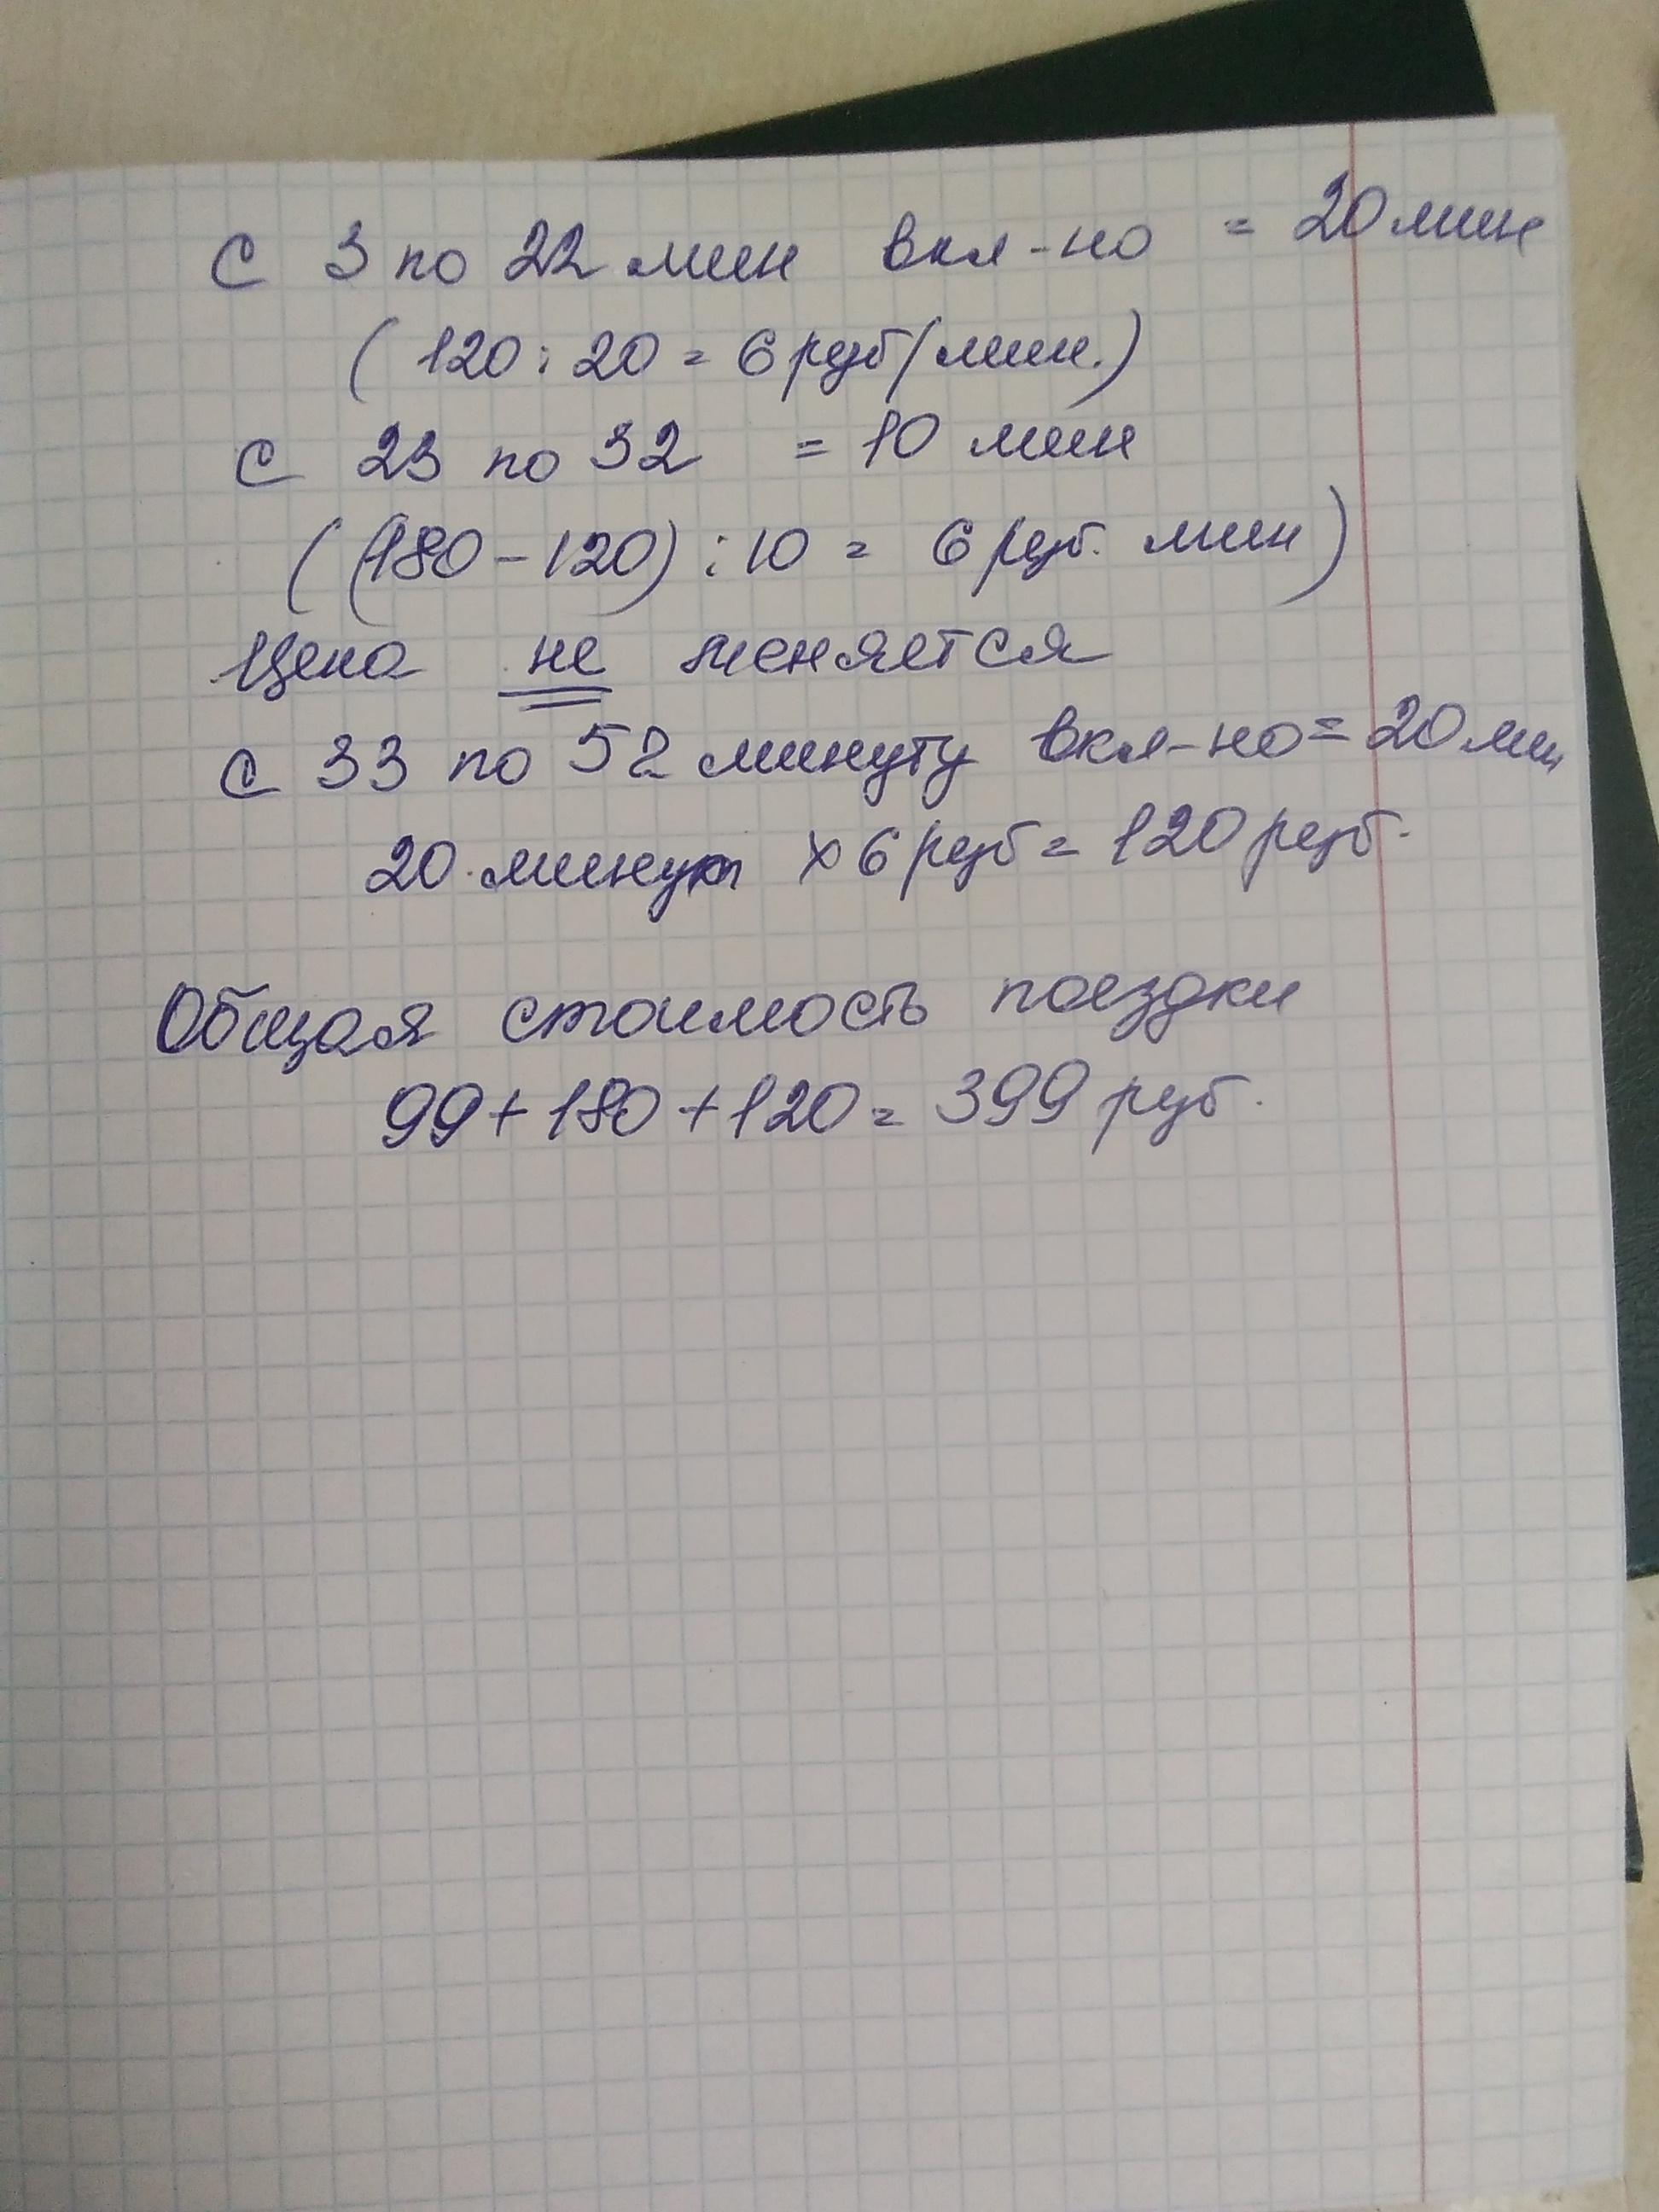 С 3 по 22 мин вкл-но = 20 мин
(120 : 20 = 6 руб/мин.)
С 23 по 32 = 10 мин
((180 - 120) : 10 = 6 руб. мин)
Цена не меняется
С 33 по 52 минуту вкл-но = 20 мин
20 минут х 6 руб = 120 руб.
Общая стоимость поездки
99 + 180 + 120 = 399 руб.